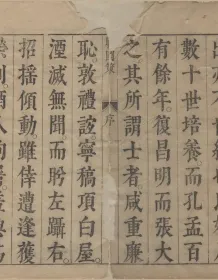 數十世培養而孔孟百
有餘年復昌明而張大
之其所謂士者咸重廉
序
恥敦禮誼寧稿項白屋
湮滅無聞而盻左躡右
招搖傾動雖倖遭逢獲